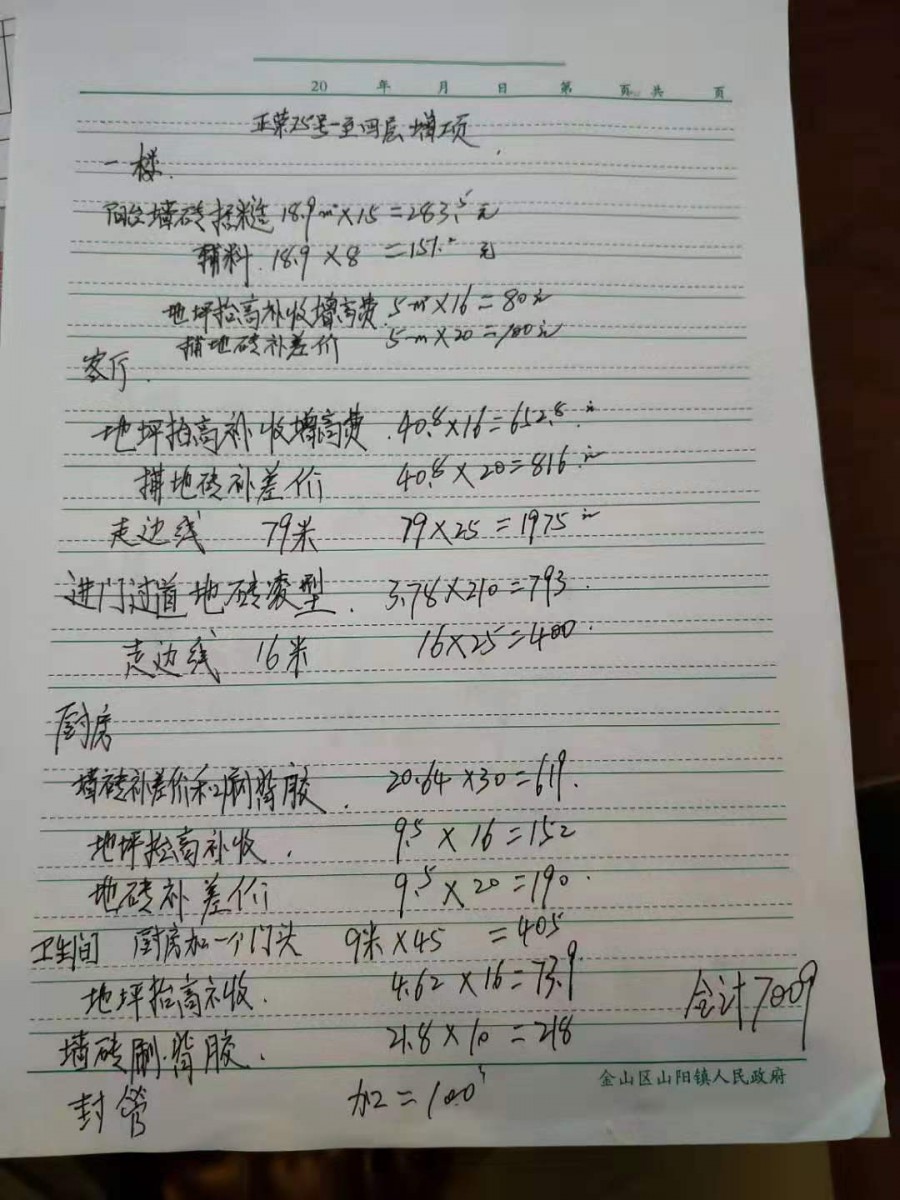 20 年 月 日 第 页 共 页
正荣25号一至四层增项
一楼.
阳台墙砖 18.9m²×15=283.5元
辅料.18.9×8=151.2元
地坪抬高补收增高费.5m²×16=80元
铺地砖补差价 5m×20=100元
客厅.
地坪抬高补收增高费.40.8×16=652.8元
铺地砖补差价 40.8×20=816元
走边线 79米 79×25=1975元
进门过道地砖菱型.3.78×210=793.
走边线 16米 16×25=400.
厨房
墙砖补差价和刷背胶.20.64×30=619.
地坪抬高补收.9.5×16=152
地砖补差价 9.5×20=190.
卫生间 厨房加一个门头 9米×45=405
地坪抬高补收.4.62×16=73.9
墙砖刷背胶.21.8×10=218
合计7009
封管 加2=100
金山区山阳镇人民政府